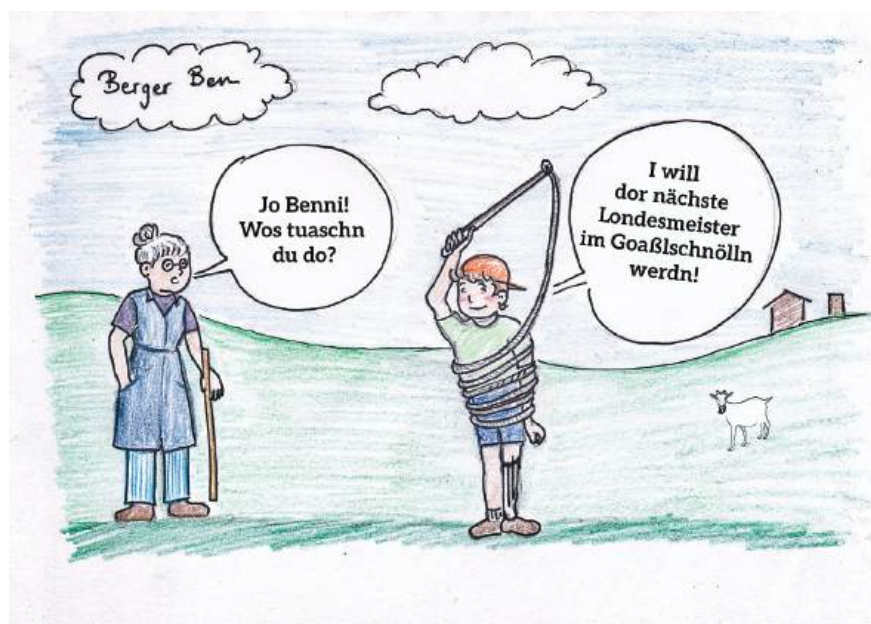 Berger Ben
Jo Benni!
Wos tuaschn
du do?
I will
dor nächste
Londesmeister
im Goaßlschnölln
werdn!